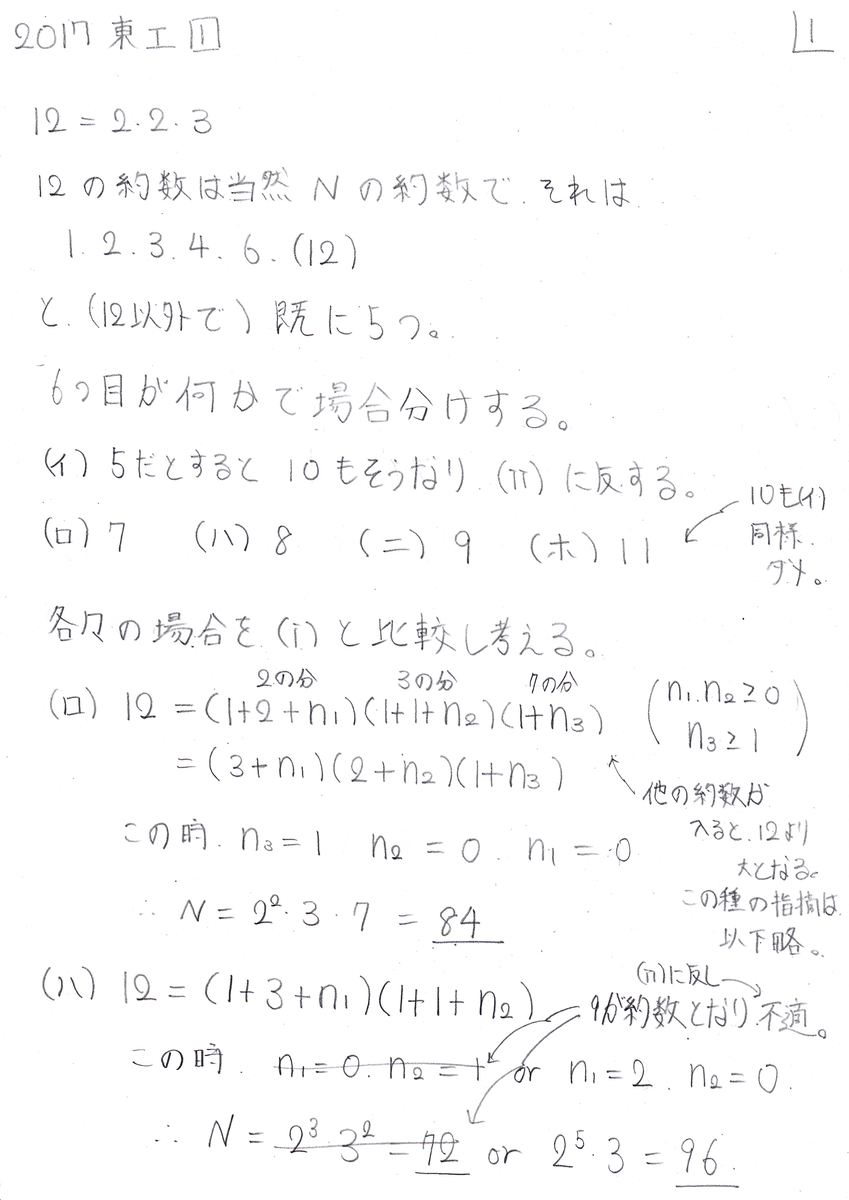 2017 東工 1
1
12 = 2・2・3
12の約数は当然Nの約数で、それは
1. 2. 3. 4. 6. (12)
と、(12以外で) 既に5つ。
6つ目が何かで場合分けする。
(イ) 5だとすると10もそうなり、(ii)に反する。
(ロ) 7 (ハ) 8 (ニ) 9 (ホ) 11
10も(イ)
同様、
ダメ。
各々の場合を(i)と比較し考える。
2の分 3の分 7の分
(ロ) 12 = (1+2+n₁)(1+1+n₂)(1+n₃) (n₁.n₂≥0
n₃≥1)
= (3+n₁)(2+n₂)(1+n₃)
他の約数が
入ると、12より
大となる。
この種の指摘は
以下略。
この時、n₃=1 n₂=0. n₁=0
∴ N = 2²・3・7 = 84
(ハ) 12 = (1+3+n₁)(1+1+n₂)
(ii)に反し
9が約数となり、不適。
この時. n₁=0. n₂=1 or n₁=2. n₂=0.
∴ N = 2³ 3² = 72 or 2⁵・3 = 96.